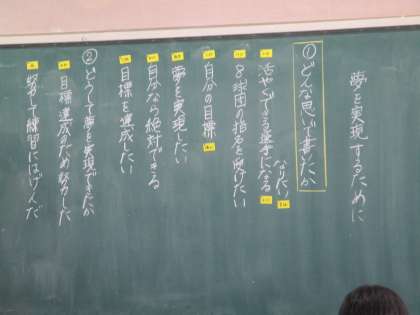 夢を実現するために
①どんな思いで書いたか
活やくできる選手になる
なりたい
8球団の指名を受けたい
自分の目標
夢を実現したい
自分なら絶対できる
目標を達成したい
②どうして夢を実現できたか
目標達成のため努力した
努力して練習にはげんだ